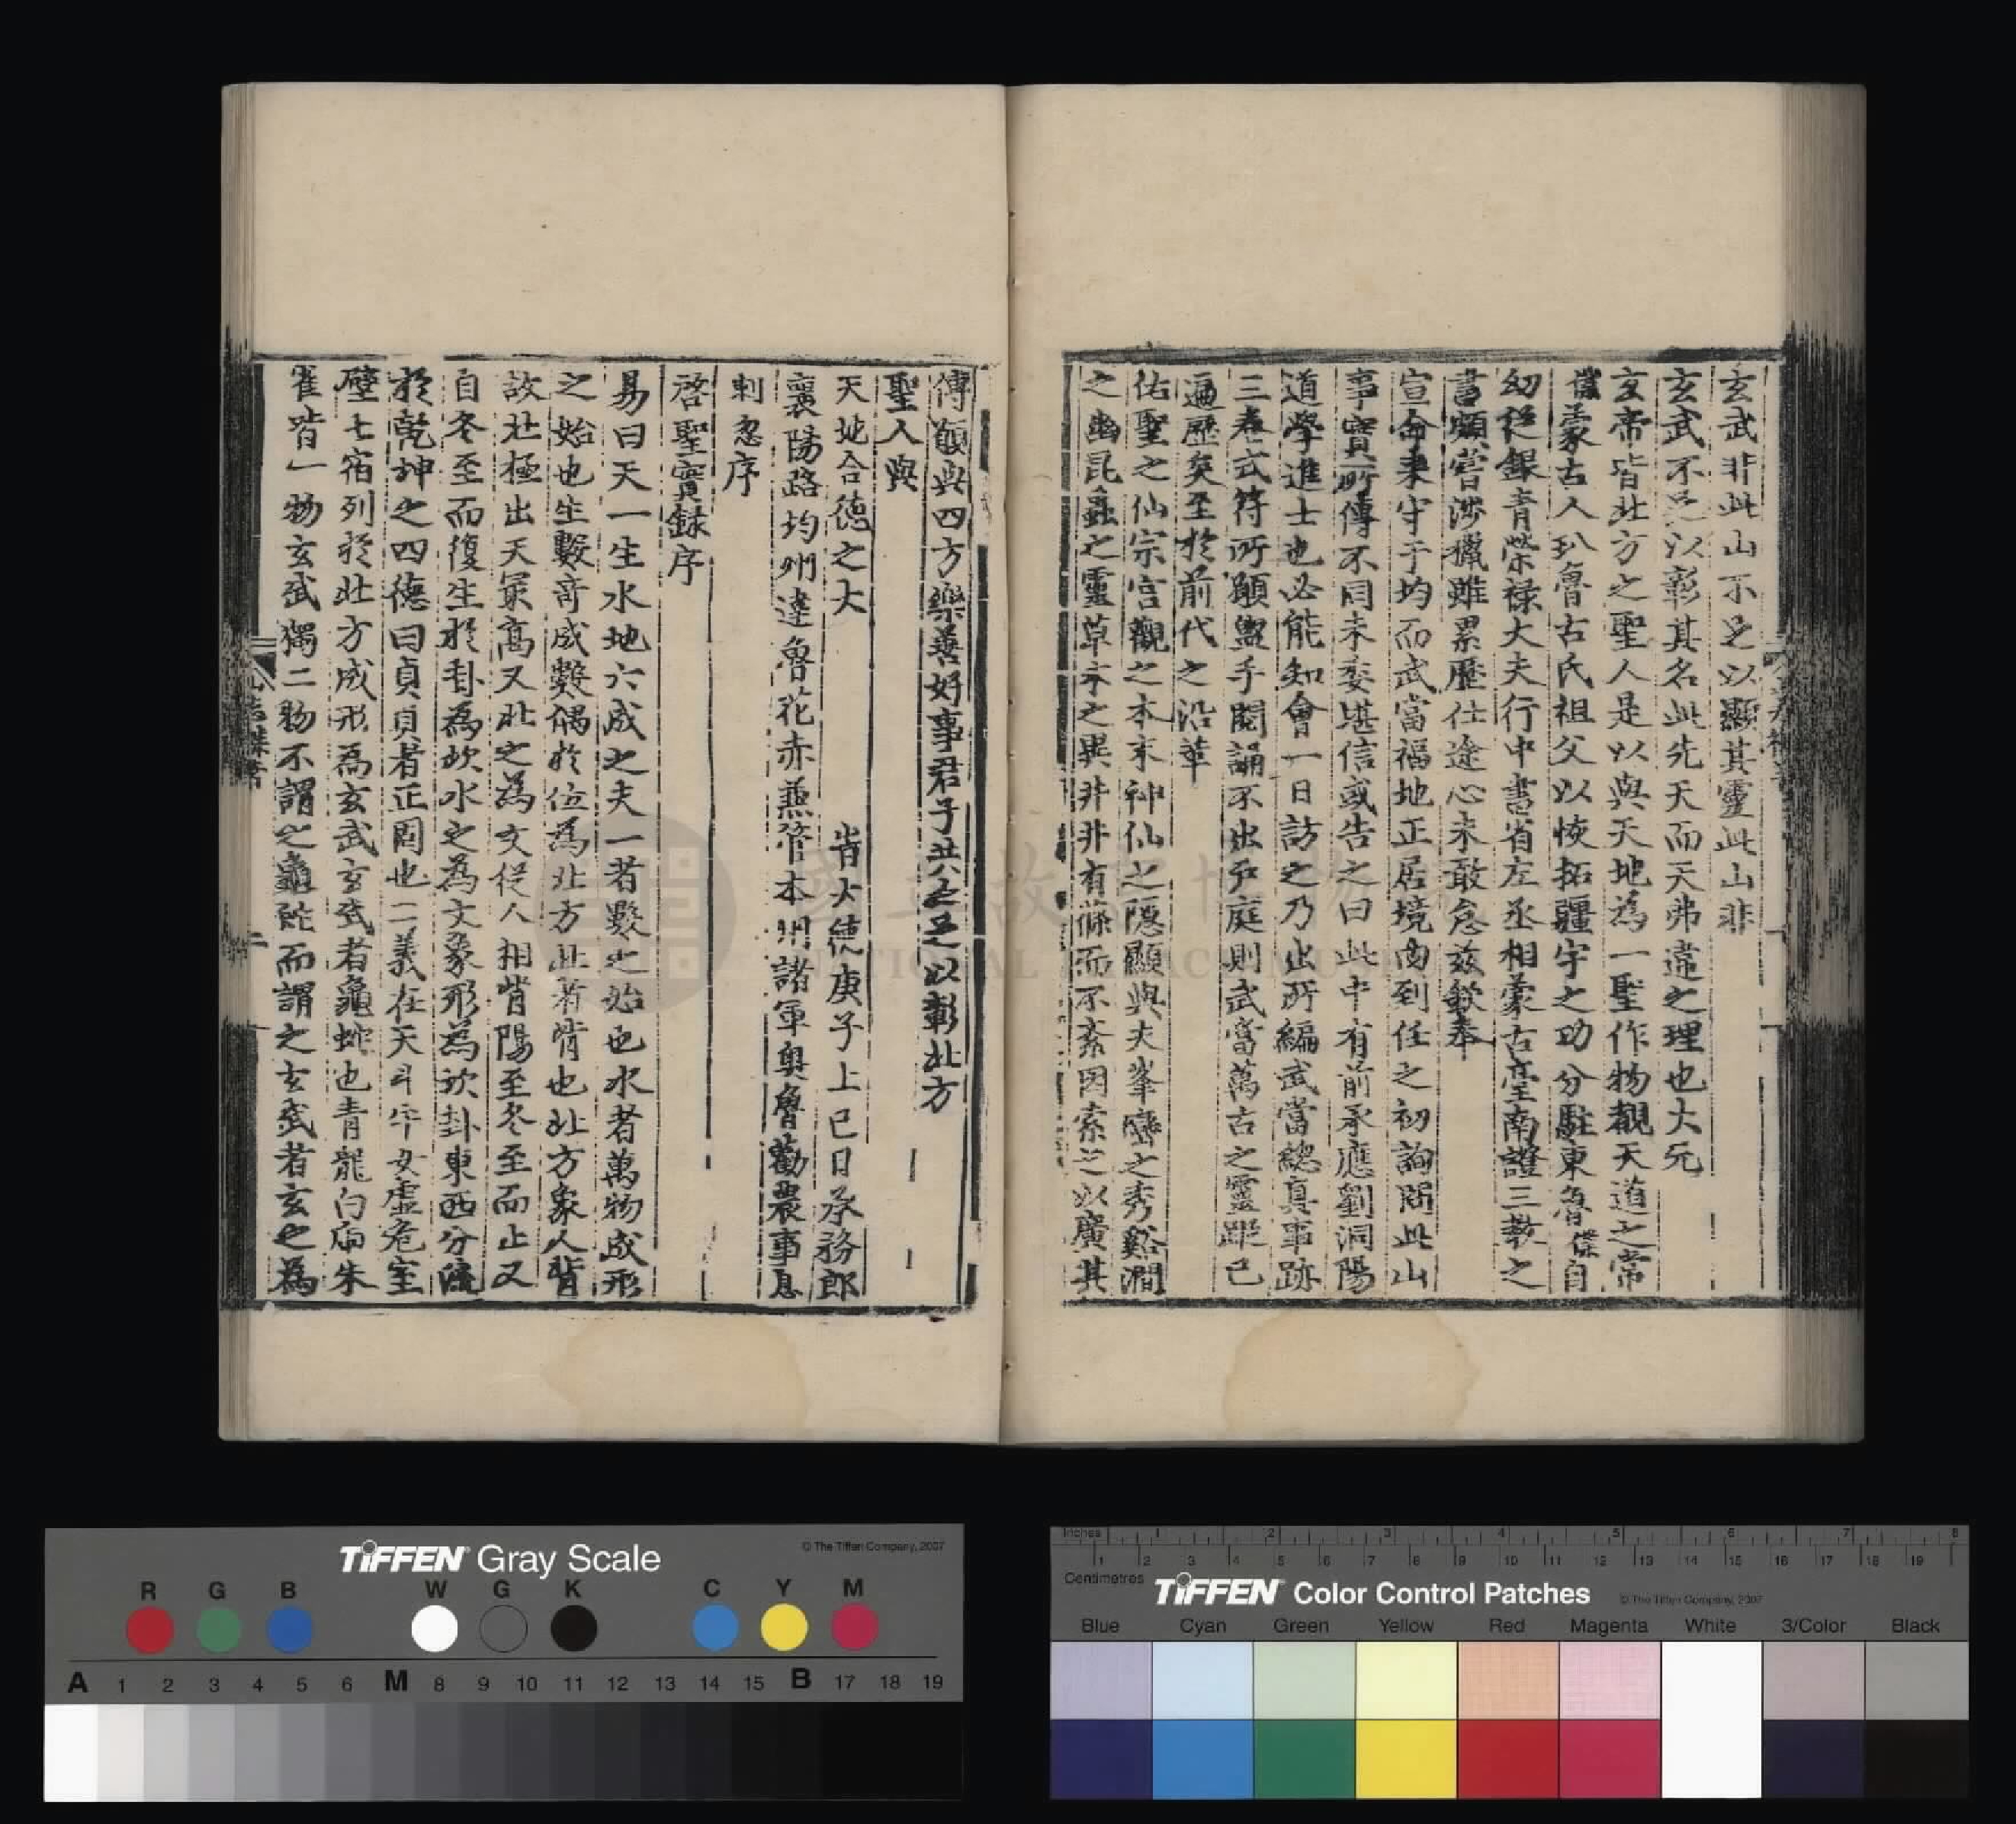 玄武非此山不足以顯其靈此山非
玄武不足以彰其名此先天而天弗違之理也大元
玄帝皆北方之聖人是以與天地為一聖作物覩天道之常
儅蒙古人八魯古氏祖父以恢拓疆宇之功分駐東魯儅自
幼從銀青榮祿大夫行中書省左丞相蒙古臺南證三教之
書頗嘗涉獵雖累歷仕途心未敢怠茲欽奉
宣命来守于均而武當福地正居境內到任之初詢問此山
事實所傳不同未委堪信或告之曰此中有前承應劉洞陽
道學進士也必能知會一日訪之乃出所編武當總真事跡
三卷式符所願盥手閱誦不出戶庭則武當萬古之靈蹤已
遍歷矣至於前代之沿革
佑聖之仙宗宮觀之本末神仙之隱顯與夫峯巒之秀谿澗
之幽昆蟲之靈草木之異井井有條而不紊因索之以廣其
傳願與四方樂善好事君子共之足以彰北方
聖人與
天地合德之大 旹大德庚子上巳日承務郎
襄陽路均州達魯花赤兼管本州諸軍奧魯勸農事息
剌忽序
啓聖實録序
易曰天一生水地六成之夫一者數之始也水者萬物成形
之始也生數竒成數偶於位為北方北者背也北方象人背
故北極出天冣髙又北之為文從人相背陽至冬至而止又
自冬至而復生於卦為坎水之為文象形為坎卦東西分流
於乾坤之四德曰貞貞者正固也二義在天斗牛女虛危室
壁七宿列於北方成形為玄武玄武者龜蛇也青龍白虎朱
雀皆一物玄武獨二物不謂之龜蛇而謂之玄武者玄之為
國立故宮博物院
NATIONAL PALACE MUSEUM
TIFFEN Gray Scale
© The Tiffen Company, 2007
R G B W G K C Y M
A 1 2 3 4 5 6 M 8 9 10 11 12 13 14 15 B 17 18 19
Inches 1 2 3 4 5 6 7 8
1 2 3 4 5 6 7 8 9 10 11 12 13 14 15 16 17 18 19
Centimetres
TIFFEN Color Control Patches
© The Tiffen Company, 2007
Blue Cyan Green Yellow Red Magenta White 3/Color Black